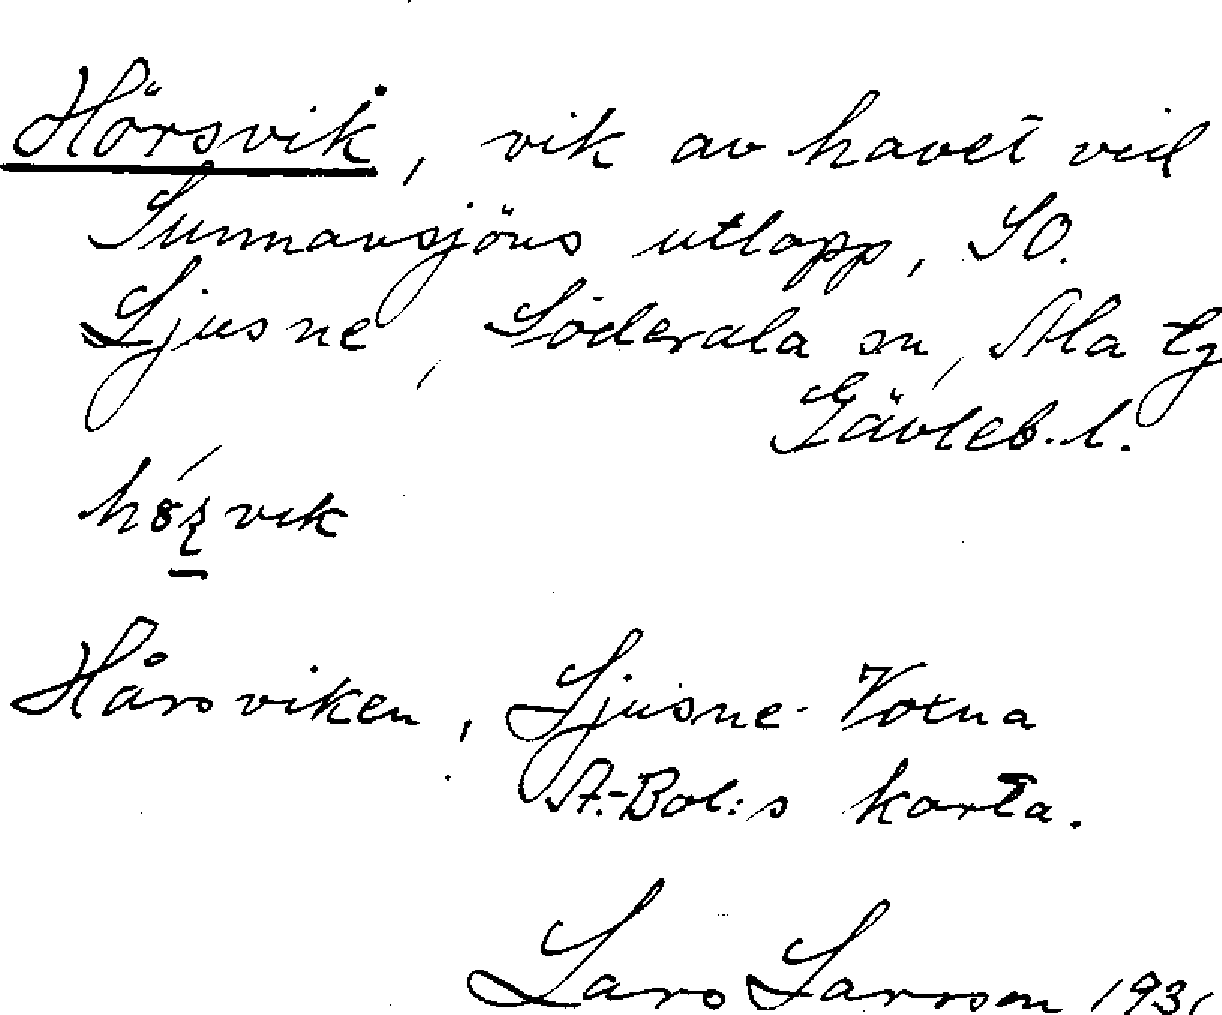 Hörsvik, vik av havet vid
Sunnansjöns utlopp, SO.
Ljusne, Söderala sn, Ala tg
Gävleb. l.
vik
Hårsviken, Ljusne-Voxna
A.-Bol:s karta.
Lars Larsson 1931